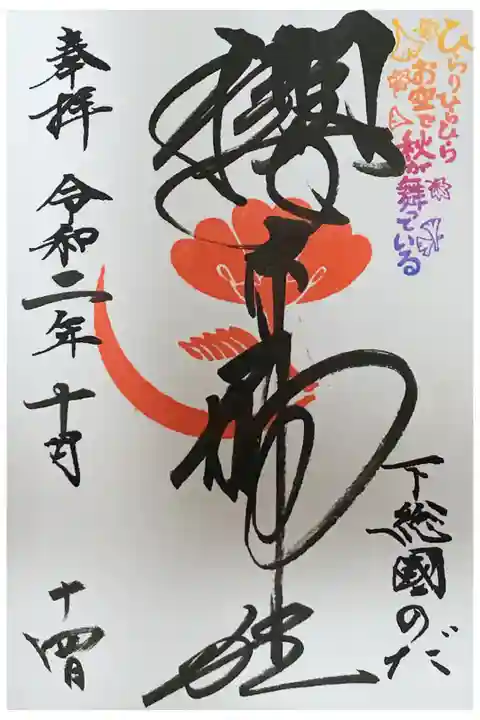 ひらりひらひら
お空で秋が舞っている
下総國のだ
櫻木神社
奉拝 令和二年十月
十四日